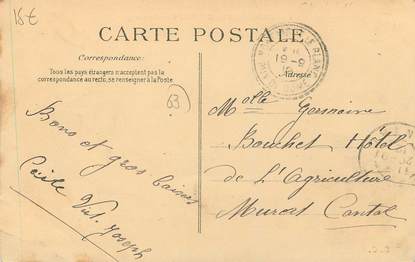 15€
CARTE POSTALE
Correspondance:
Tous les pays étrangers n'acceptent pas la
correspondance au recto, se renseigner à la Poste.
63
Bons et gros baisers
Joseph
Adresse
Melle Germaine
Bouchet Hôtel
de L'Agriculture
Murat Cantal